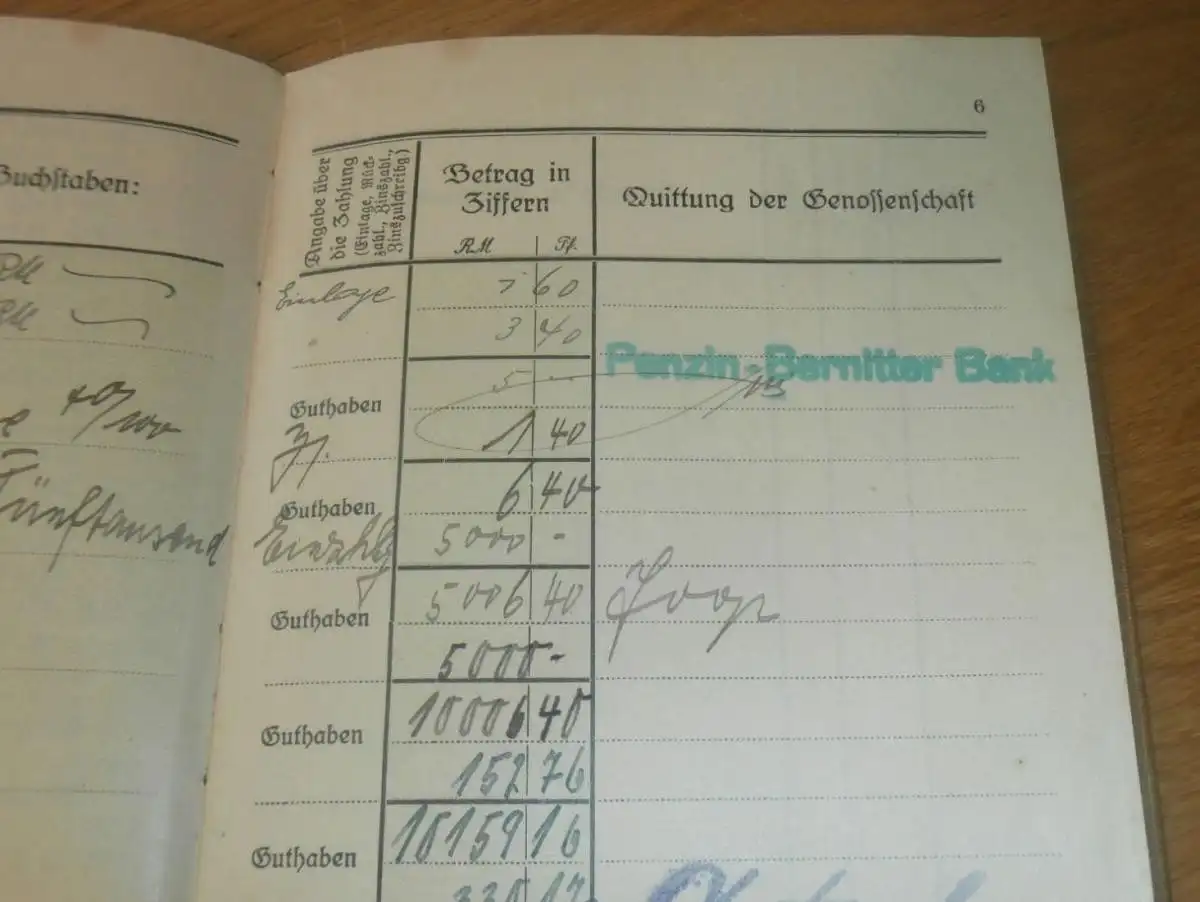 Buchstaben:
RM
RM
40/100
Fünftausend
6
Angabe über
die Zahlung
(Einlage, Rück-
zahl., Zinszahl.,
Zinszuschreibg.)
Betrag in
Ziffern
RM Pf.
Quittung der Genossenschaft
Einlage 60
" 3 40
Penzin-Bernitter Bank
Guthaben 5 —
1 40
Guthaben 6 40
Einzahlg 5000 -
Guthaben 5006 40
5000 -
Guthaben 10006 40
152 76
Guthaben 10159 16